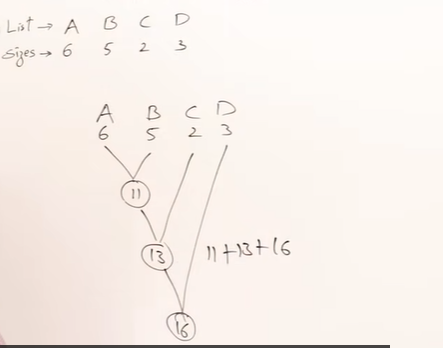 List → A B C D
Sizes → 6 5 2 3
A B C D
6 5 2 3
11
13 11+13+16
16